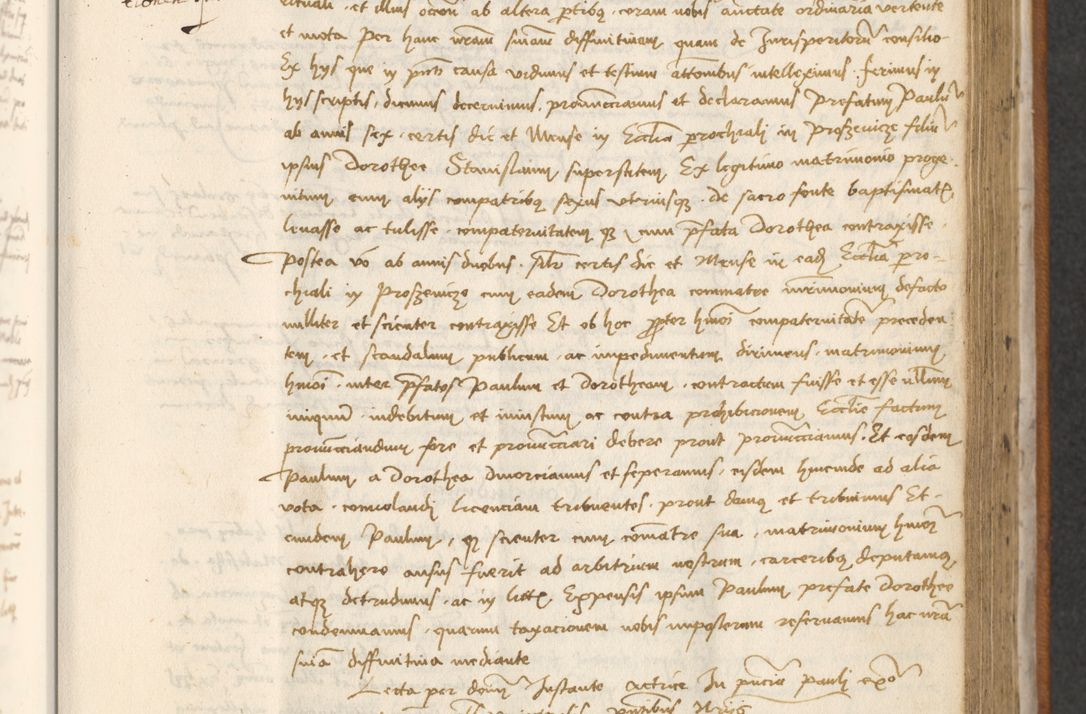 rituali et illius occōn ab altera ꝑtibꝫ coram nobis auctate ordinaria vertente
et mota Per hanc nrām suiam diffinitivam quam de Jurisperitorū consilio
Ex hys que in pnti causa vidimus et testium attōnibus intelleximus ferimus in
hys scriptis, dicimus decernimus, pronunctiamus et declaramus Prefatum Paulū
ab annis sex certis die et Mense in Eccliā prochiali in Proszevicze filiū
ipsius Dorothee Stanislaum superstitem Ex legitimo matrimonio proge-
nitum cum alijs compatribꝫ sexus utriusqꝫ de sacro fonte baptismatꝭ
levasse ac tulisse compaternitatem qꝫ cum pfata Dorothea contraxisse.
Postea vō ab annis duobus, silr certis die et Mense in eadē Eccliā pro-
chiali in Proszevicze cum eadem Dorothea commatre mrimonium defacto
nulliter et scienter contraxisse Et ob hoc ꝓpter hmōi compaternitatē preceden
tem et scandalum publicum ac impedimentum dirimens matrimonium
hmōi inter pfatos Paulum et Dorotheam contractum fuisse et esse nullum
iniquum indebitum et iniustum ac contra prohibicionem Ecclie factum
pronuncciandum fore et pronuncciari debere prout pronuncciamus. Et eosdem
Paulum a Dorothea divorciamus et seperamus, eisdem hincinde ad alia
vota convolandi licenciam tribuentes prout damꝫ et tribuimus Et
eundem Paulum, qꝫ scienter cum cōmatre sua, matrimonium hmōi
contrahere ausus fuerit ad arbitrium nostrum carceribꝫ deputamꝫ
atqꝫ detrudimus ac in litꝭ Expensis ipsum Paulum prefate Dorothee
condemnamus, quarum taxacionem nobis imposterum reservamus hac nrā
suiā diffinitiva mediante
Lecta per dominū Instante actrice In pnciā Pauli